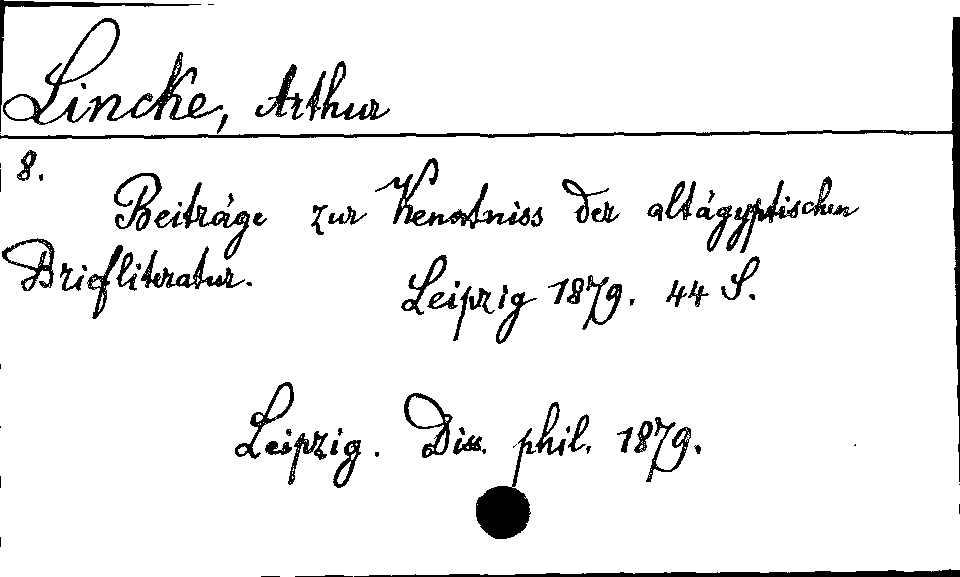 Lincke, Arthur
8.
Beiträge zur Kenntniss der altägyptischen
Briefliteratur.
Leipzig 1879. 44 S.
Leipzig. Diss. phil. 1879.